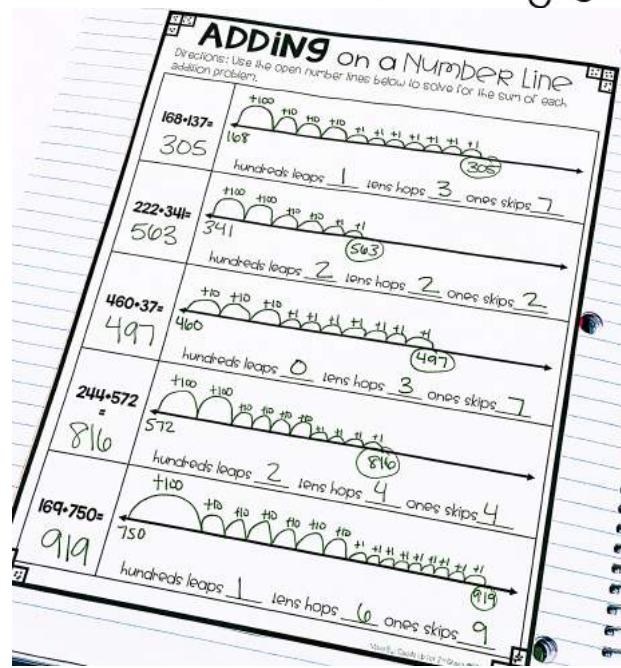 ADDiNG on a Number Line
Directions: Use the open number lines below to solve for the sum of each
addition problem.
168+137=
305
+100 +10 +10 +10 +1 +1 +1 +1 +1 +1 +1
168
305
hundreds leaps 1 tens hops 3 ones skips 7
222+341=
563
+100 +100 +10 +10 +1 +1
341
563
hundreds leaps 2 tens hops 2 ones skips 2
460+37=
497
+10 +10 +10 +1 +1 +1 +1 +1 +1 +1
460
497
hundreds leaps 0 tens hops 3 ones skips 7
244+572
=
816
+100 +100 +10 +10 +10 +10 +1 +1 +1 +1
572
816
hundreds leaps 2 tens hops 4 ones skips 4
169+750=
919
+100 +10 +10 +10 +10 +10 +10 +1 +1 +1 +1 +1 +1 +1 +1 +1
750
919
hundreds leaps 1 tens hops 6 ones skips 9